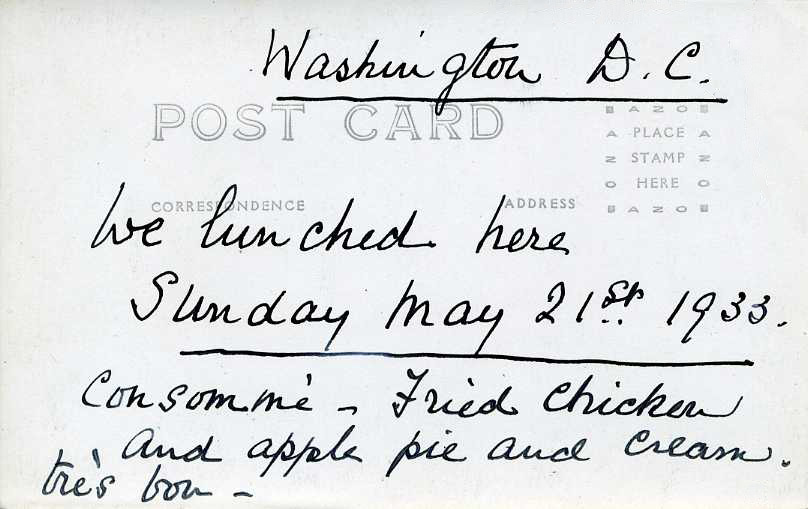 Washington D.C.
POST CARD
BAZOB
A PLACE A
Z STAMP Z
O HERE O
BAZOB
CORRESPONDENCE
ADDRESS
We lunched here
Sunday May 21st 1933.
Consommé - Fried chicken
and apple pie and cream.
très bon -